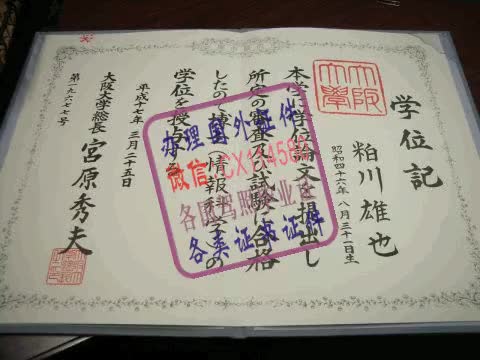 学位記
大阪大学
粕川雄也
昭和四十六年八月三十一日生
本学に学位論文を提出し
所定の審査及び試験に合格
したので博士(情報科学)の
学位を授与する
平成十七年三月二十五日
大阪大学総長 宮原秀夫
第一九六七七号
办理国外证件
微信
各国驾照毕业证
各类证